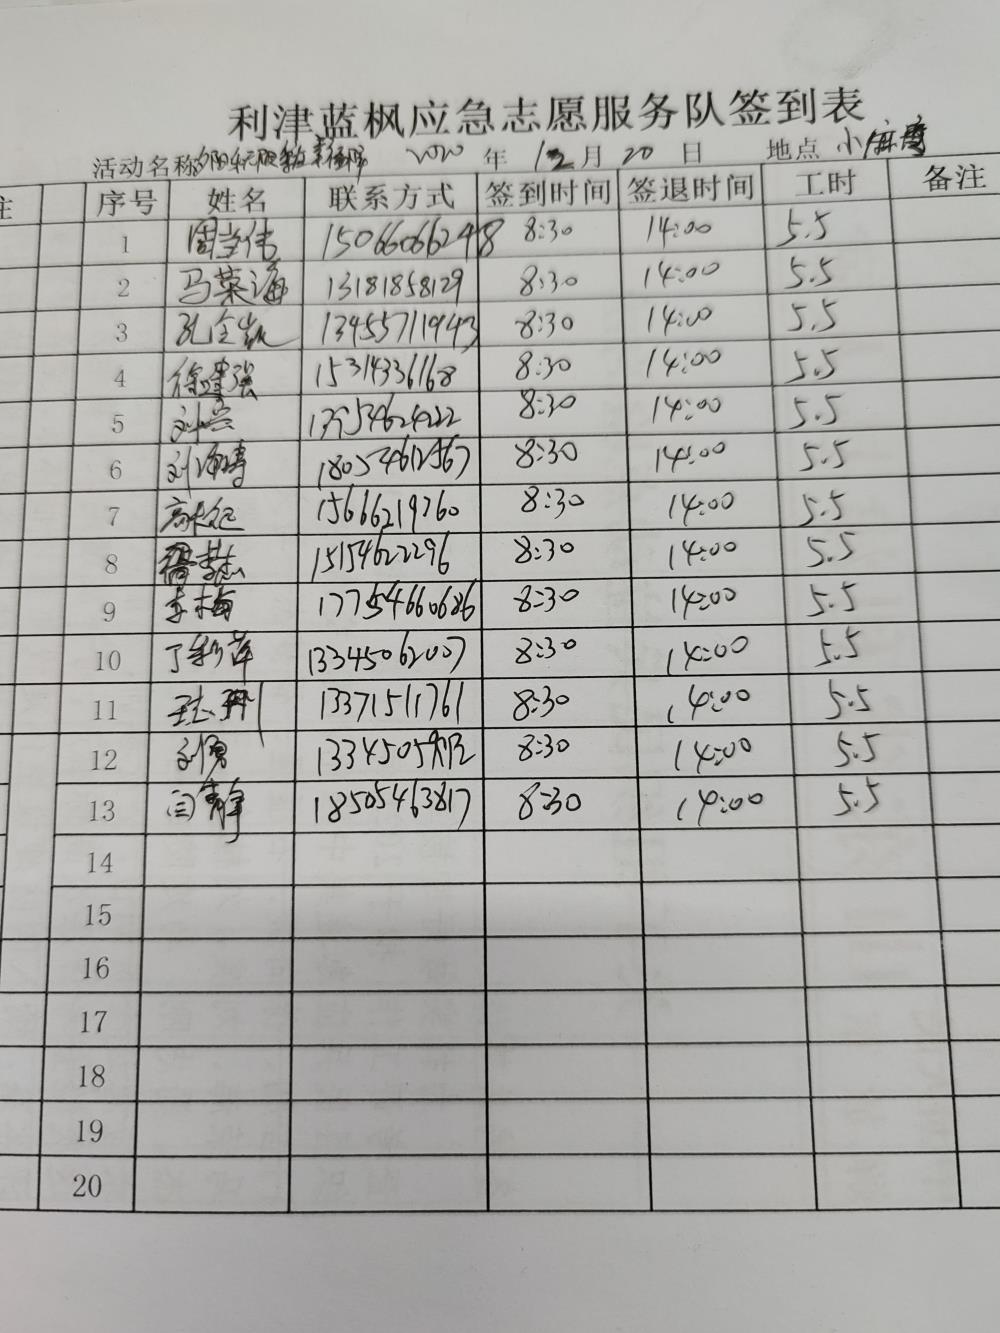 利津蓝枫应急志愿服务队签到表
活动名称 2020 年 12 月 20 日 地点 小麻湾
注 序号 姓名 联系方式 签到时间 签退时间 工时 备注
1 周当伟 15066066248 8:30 14:00 5.5
2 马荣海 13181858129 8:30 14:00 5.5
3 孔全凯 13455711943 8:30 14:00 5.5
4 徐建强 15314336168 8:30 14:00 5.5
5 8:30 14:00 5.5
6 刘海涛 8:30 14:00 5.5
7 15666219760 8:30 14:00 5.5
8 15154622296 8:30 14:00 5.5
9 李梅 17754660686 8:30 14:00 5.5
10 丁秋萍 13345062007 8:30 14:00 5.5
11 13371511761 8:30 14:00 5.5
12 刘勇 8:30 14:00 5.5
13 闫静 18505463817 8:30 14:00 5.5
14
15
16
17
18
19
20